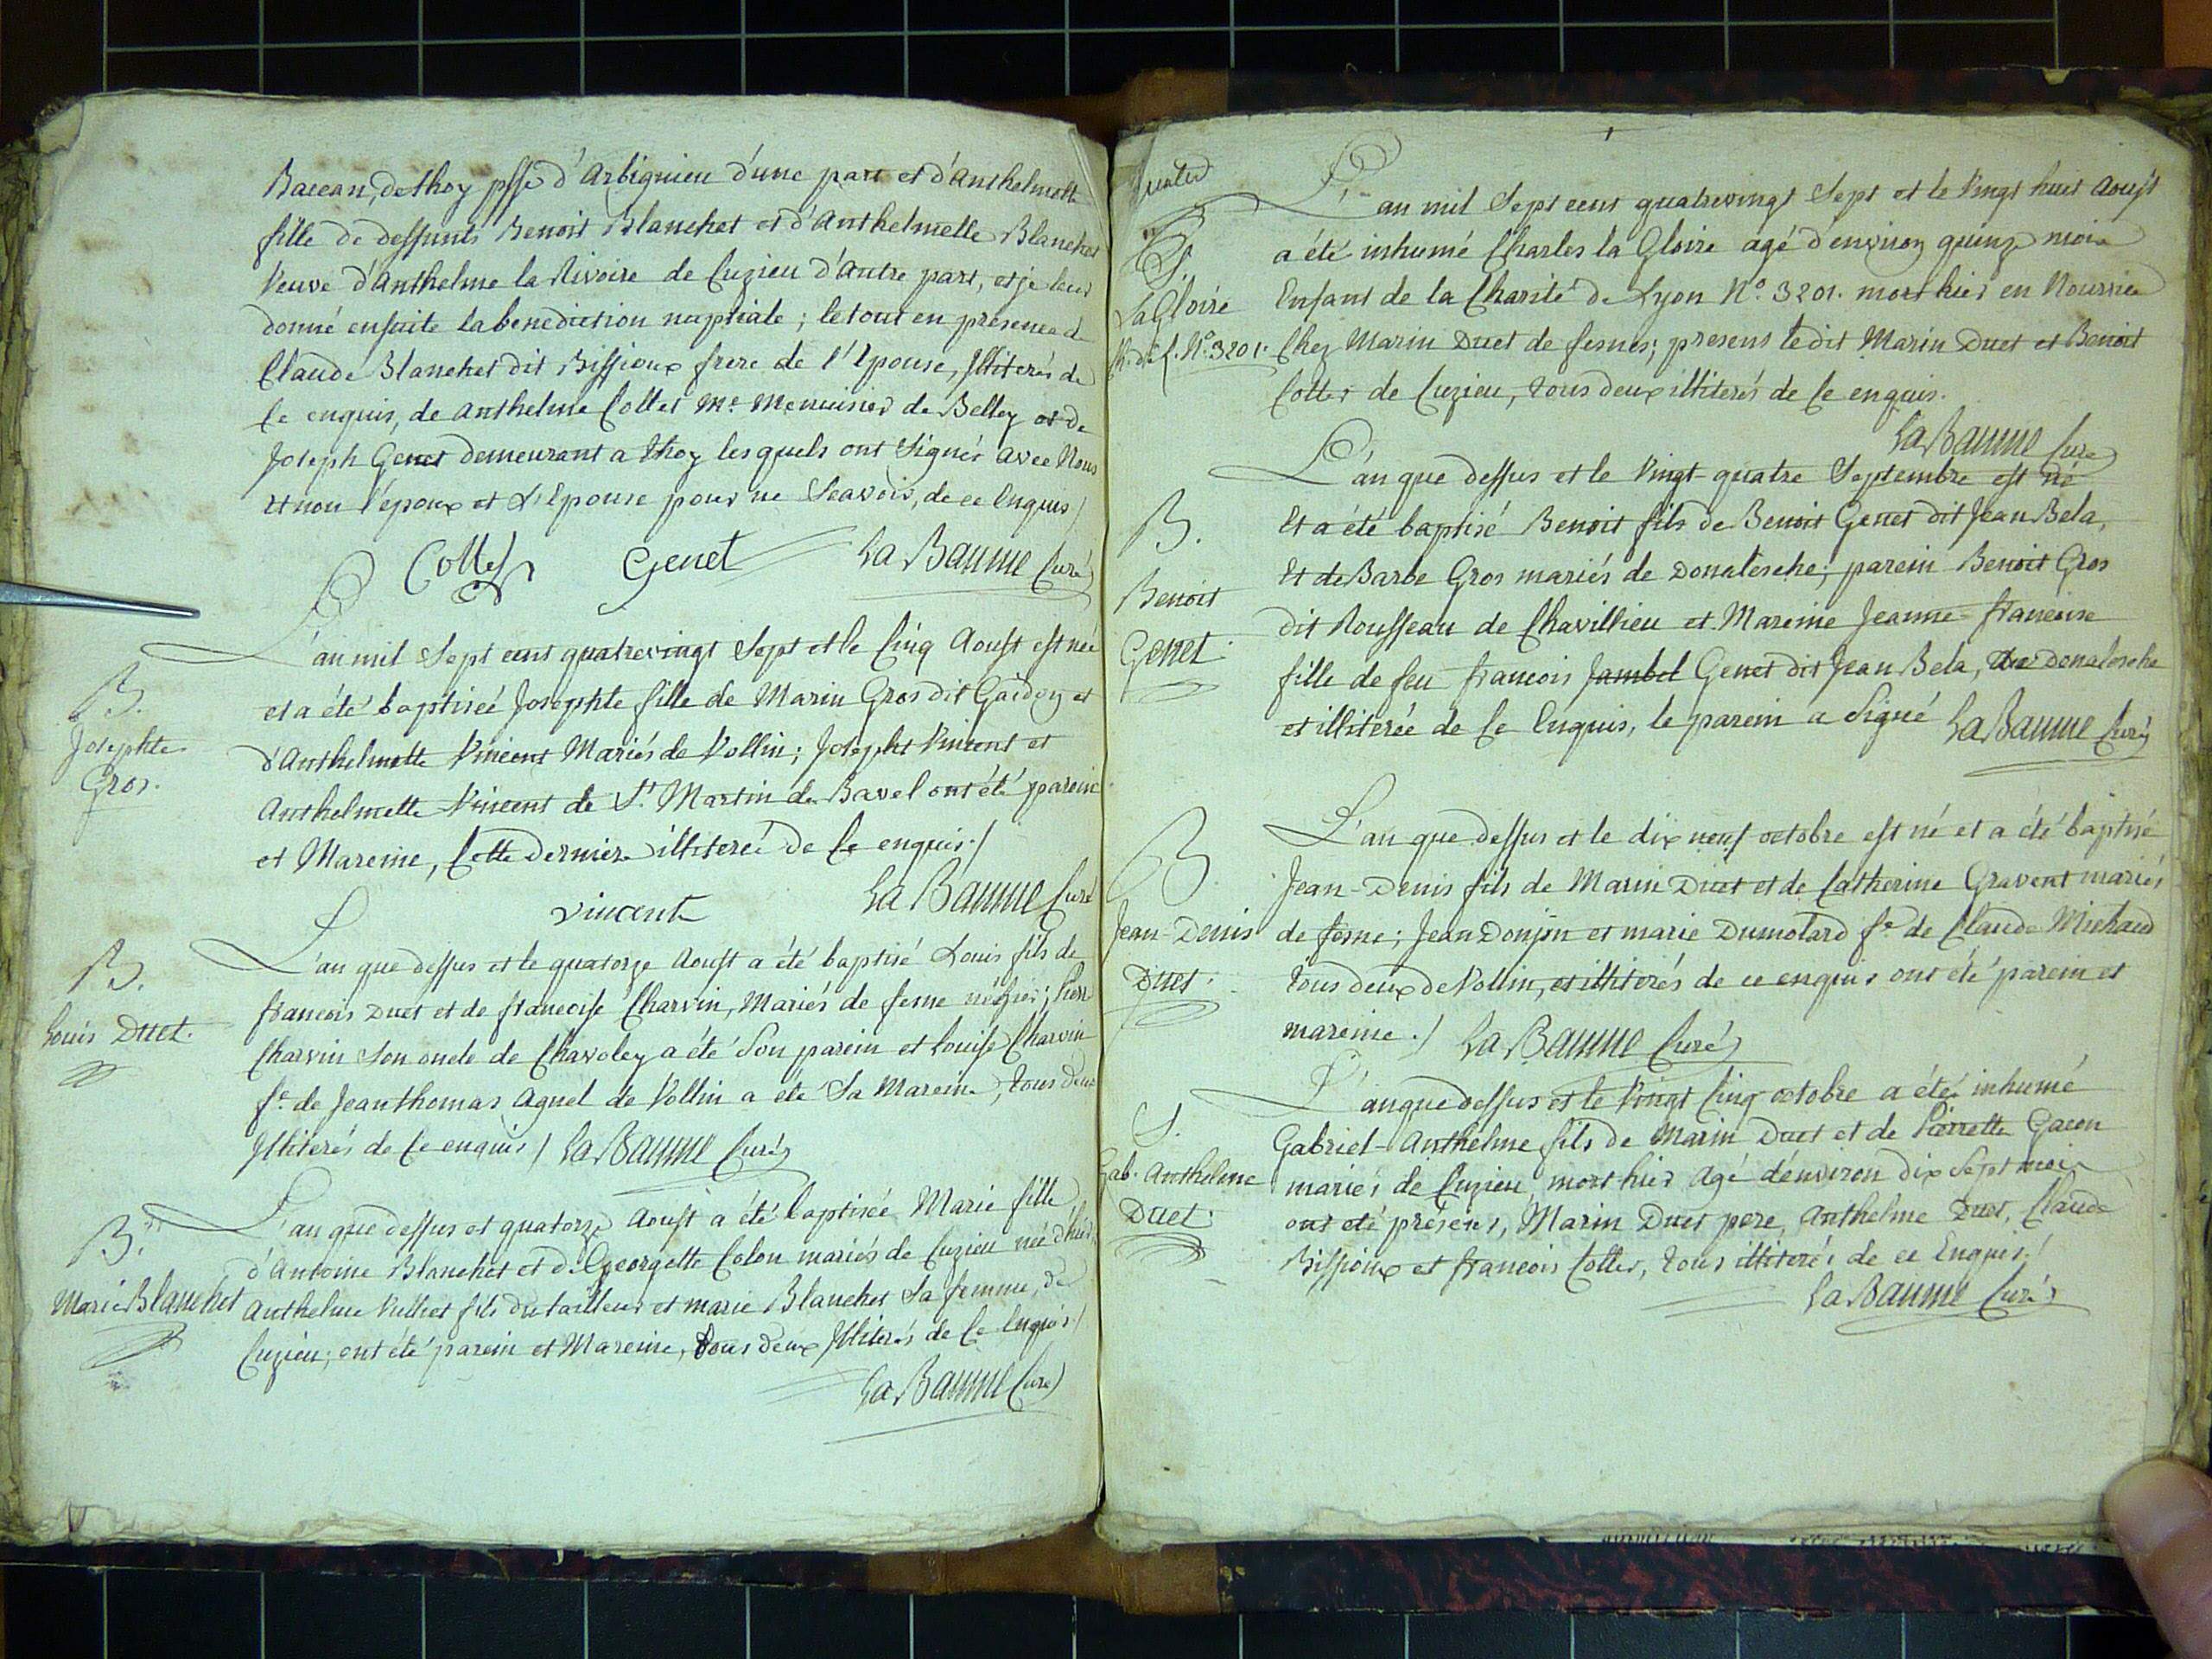 Baccan, de thoy psse d'Arbignieu d'une part et d'Anthelmette
fille de deffunts Benoit Blanchet et d'Anthelmette Blanchet
Veuve d'Anthelme la Rivoire de Cuzieu d'Autre part, et je leur
donné ensuite la benediction nuptiale ; le tout en présence de
Claude Blanchet dit Bissioux frere de l'Epouse, Illiterés de
Ce enquis, de Anthelme Collet Me. Menuisier de Belley et de
Joseph Genet demeurant a thoy lesquels ont Signés avec Nous
et non l'époux et L'Epouse pour ne Scavoir, de ce Enquis /
Collet Genet La Baume Curé
L'an mil Sept cent quatrevingt Sept et le Cinq Aoust est née
et a été baptiseé Josephte fille de Marin Gros dit Gaidon et
d'Anthelmette Vincent Mariés de Vollin ; Josepht Vincent et
Anthelmette Vincent de St. Martin de Bavel ont été parein
et Mareine, Cette derniere illitereé de Ce enquis ./
B.
Josephte
Gros.
vincent La Baume Curé
L'an que dessus et le quatorze Aoust a été baptisé Louis fils de
francois Duet et de francoise Charvin, Mariés de fesne né hier ; Pierre
Charvin Son oncle de Chavoley a été Son parein et Louise Charvin
fe. de Jean thomas Agnel de Vollin a été Sa Mareine, tous deux
Illiterés de Ce enquis / La Baume Curé
B.
Louis Duet.
L'an que dessus et quatorze Aoust a été baptisée Marie fille
d'Antoine Blanchet et de Georgette Colon mariés de Cuzieu née d'hier,
Anthelme Vulliet fils du tailleur et marie Blanchet Sa femme, de
Cuzieu ; ont été parein et Mareine, tous deux Illiterés de Ce Enquis /
B.
Marie Blanchet
La Baume Curé
L'an mil Sept cent quatrevingt Sept et le Vingt huit Aoust
a été inhumé Charles la Gloire agé d'environ quinze mois
Enfant de la Charité de Lyon No. 3201. mort hier en Nourrice
Chez Marin Duet de fesnes ; presens ledit Marin Duet et Benoit
Collet de Cuzieu, tous deux illiterés de Ce enquis.
S.
La Gloire
No. 3201.
La Baume Curé
L'an que dessus et le Vingt-quatre Septembre est né
Et a été baptisé Benoit fils de Benoit Genet dit Jean Bela,
Et de Barbe Gros mariés de Donalesche ; parein Benoit Gros
dit Rousseau de Chavillieu et Mareine Jeanne-francoise
fille de feu francois Jambel Genet dit Jean Bela, de Donalesche
et illitereé de Ce Enquis, le parein a Signé La Baume Curé
B.
Benoit
Genet.
L'an que dessus et le dix neuf octobre est né et a été baptisé
Jean-Denis fils de Marin Duet et de Catherine Gravent mariés
de fesne ; Jean Donjon et marie Dumolard fe. de Claude Michaud
tous deux de Vollin, et illiterés de ce enquis ont été parein et
mareine ./ La Baume Curé
B.
Jean-Denis
Duet.
L'an que dessus et le Vingt Cinq octobre a été inhumé
Gabriel-Anthelme fils de Marin Duet et de Pierrette Gacon
mariés de Cuzieu mort hier Agé d'environ dix Sept mois
ont eté présens, Marin Duet pere, Anthelme Duet, Claude
Bissioux et francois Collet, tous illiterés de ce Enquis ./
S.
Gab. Anthelme
Duet.
La Baume Curé